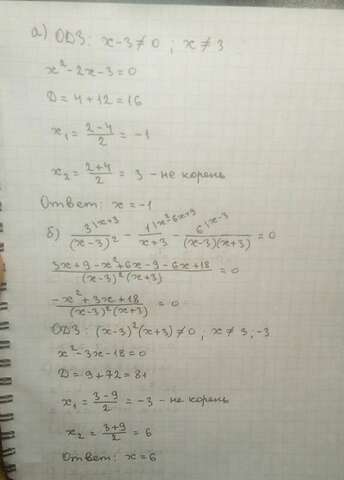 а) ОДЗ: x-3≠0 ; x≠3
x²-2x-3=0
D=4+12=16
x₁=(2-4)/2=-1
x₂=(2+4)/2=3 - не корень
Ответ: x=-1
б) 3^{|x+3}/(x-3)² - 1^{|x²-6x+9}/(x+3) - 6^{|x-3}/((x-3)(x+3)) =0
(3x+9-x²+6x-9-6x+18)/((x-3)²(x+3)) =0
(-x²+3x+18)/((x-3)²(x+3)) =0
ОДЗ: (x-3)²(x+3)≠0 ; x≠3;-3
x²-3x-18=0
D=9+72=81
x₁=(3-9)/2=-3 - не корень
x₂=(3+9)/2=6
Ответ: x=6